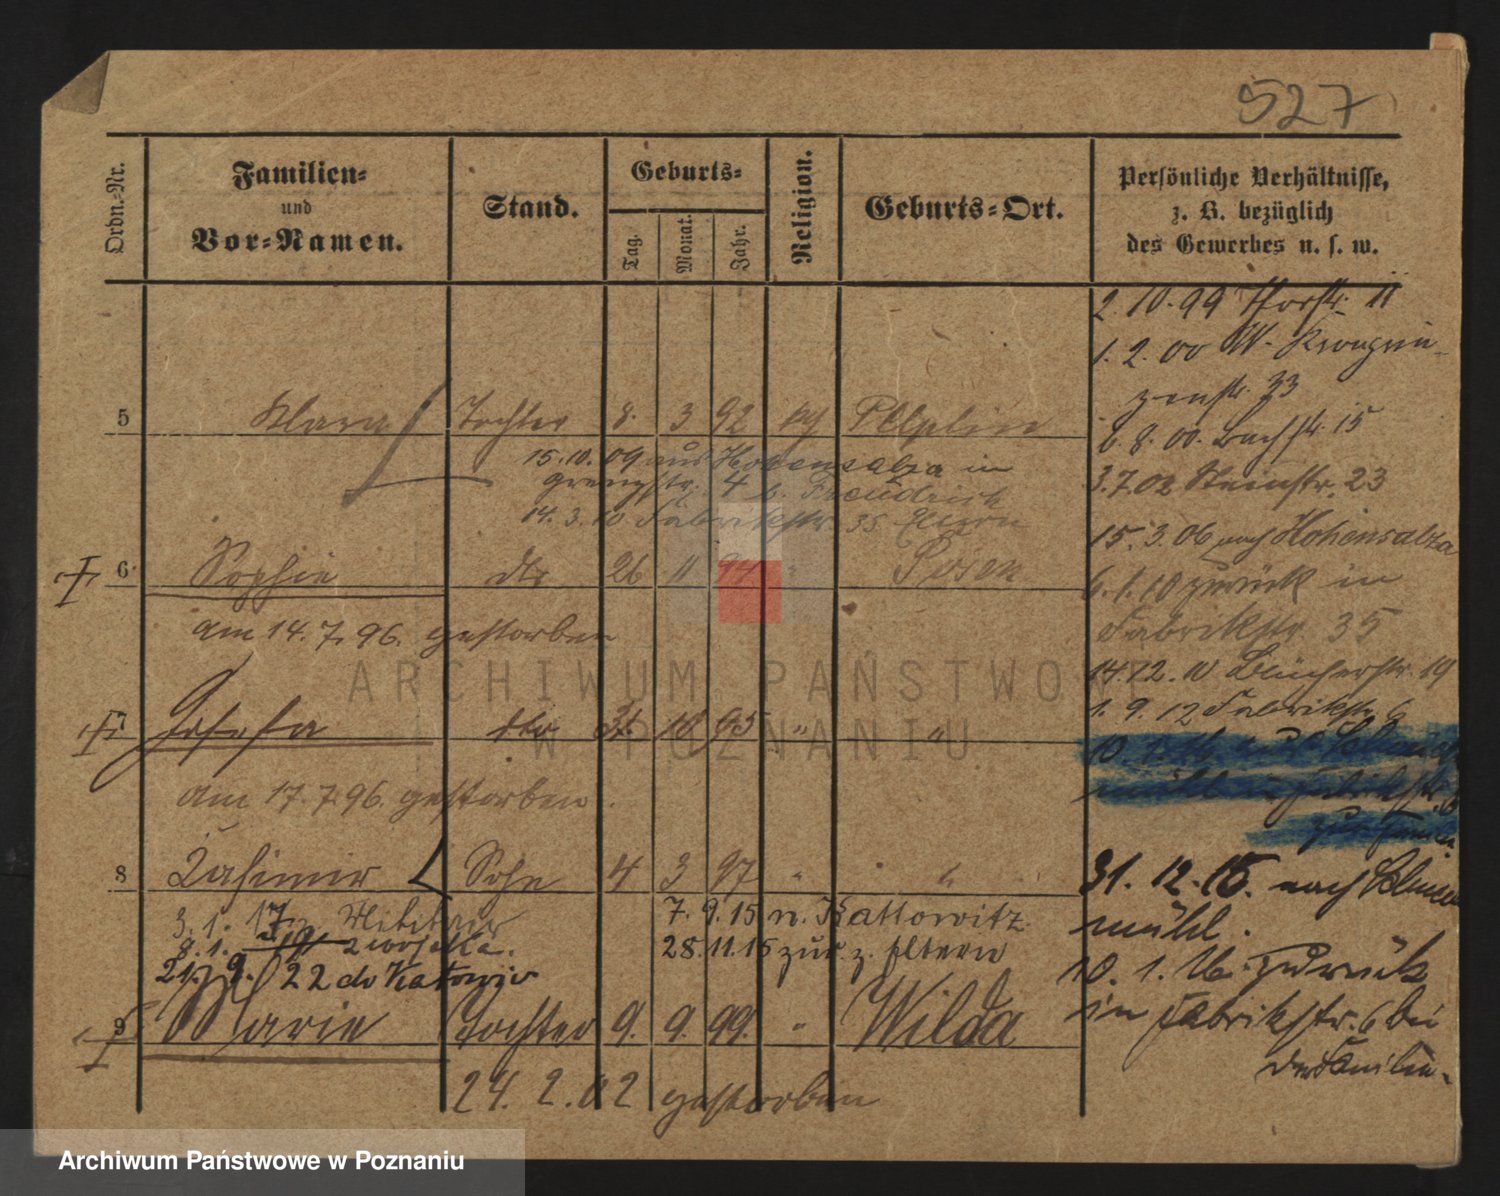 527
Ordn.-Nr.
Familien-
und
Vor-Namen.
Stand.
Geburts-
Tag.
Monat.
Jahr.
Religion.
Geburts-Ort.
Persönliche Verhältnisse,
z. B. bezüglich
des Gewerbes u. s. w.
2. 10. 99 Torstr. 11
1. 2. 00 W. Kronprin-
zenstr. 33
5 Klara Tochter 8. 3 92 Pelplin
6. 8. 00. Bachstr. 15
15. 10. 09 aus Hohensalza in
Grenzstr. 4 b.
3.7.02 Steinstr. 23
14. 3. 10 Fabrikstr. 35 Eltern
15. 3. 06 nach Hohensalza
6 Sophie dto 26 11 94 " Posen
6. 1. 10 zurück in
Fabrikstr. 35
am 14. 7. 96. gestorben
14.12. 10 Blücherstr. 19
1. 9. 12 Fabrikstr. 6
7 Josefa dto 31. 10 95 " "
10. 1. 16
am 17. 7. 96. gestorben.
zur Familie
8 Kasimir Sohn 4 3 97 " "
31. 12. 15. nach Schneide
mühl.
3. 1. 17 Militär 7. 9. 15 n. Kattowitz
8. 1. 19 z wojska. 28. 11. 15 zur. z. Eltern
21. 9. 22 do Katowic
10. 1. 16. zurück
in Fabrikstr. 6 bei
der Familie.
9 Marie Tochter 9. 9. 99. " Wilda
24. 2. 02 gestorben
ARCHIWUM PAŃSTWOWE
W POZNANIU
Archiwum Państwowe w Poznaniu